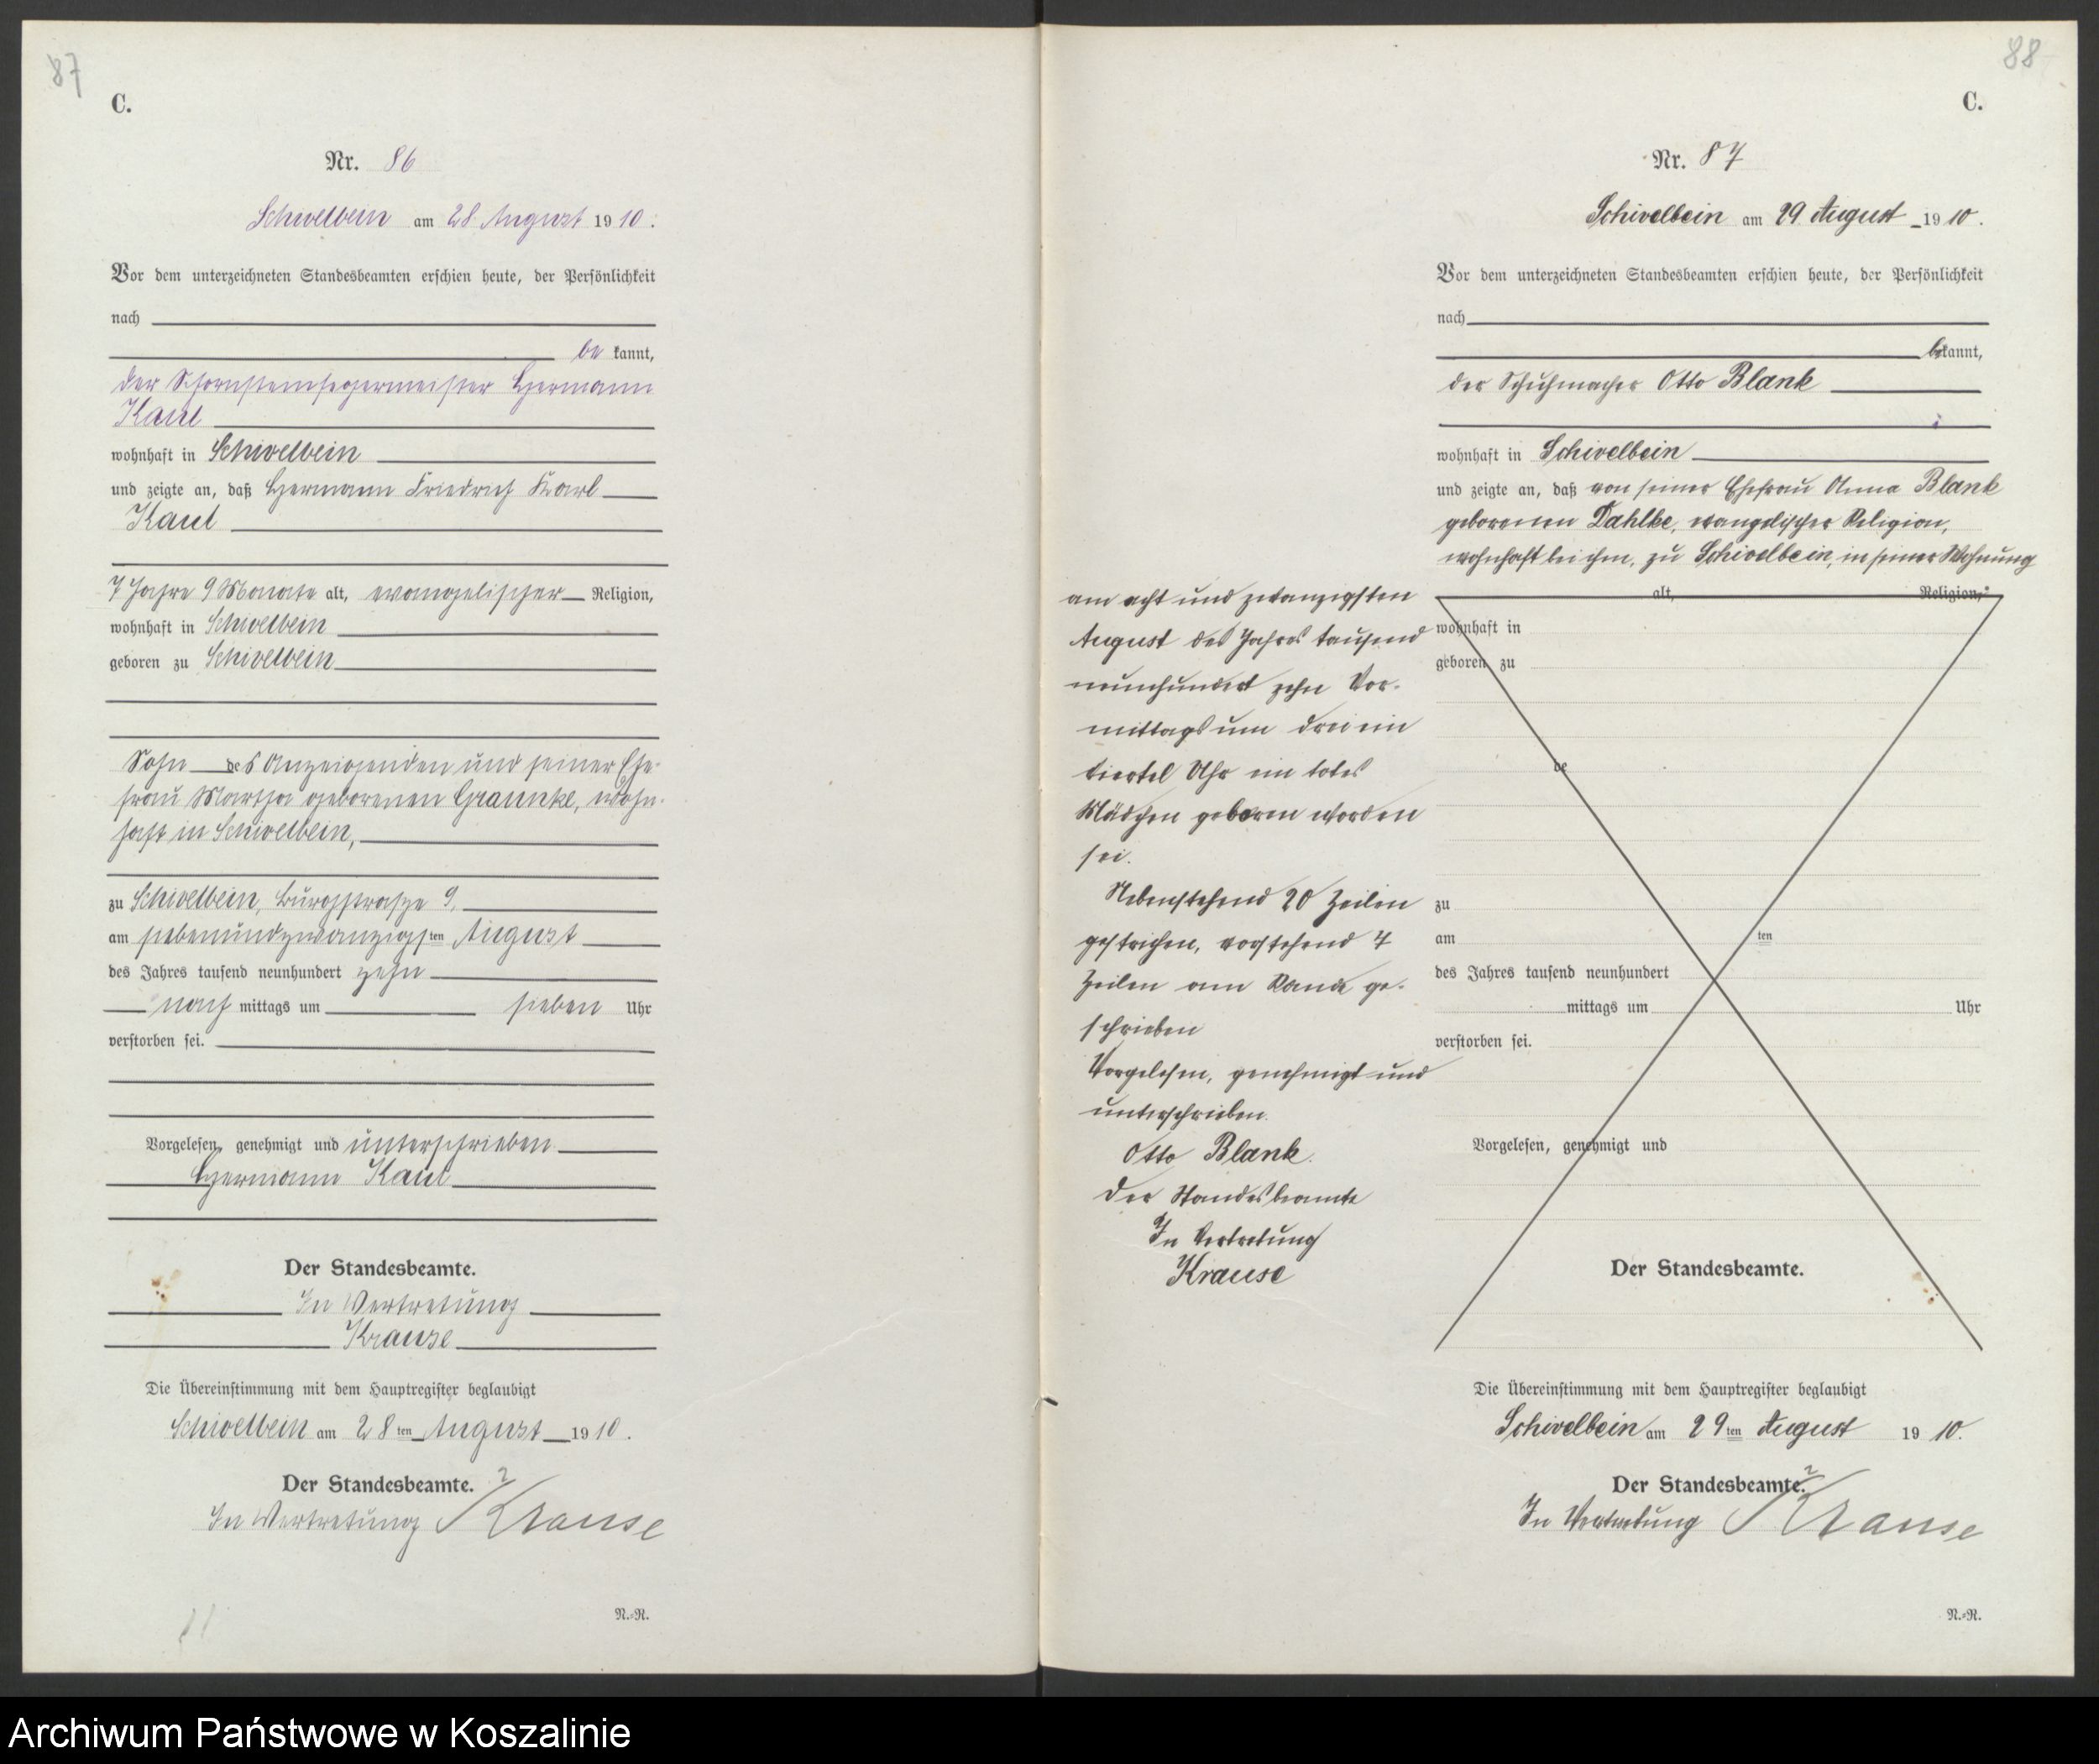 87
C.
Nr. 86
Schivelbein am 28. August 1910.
Vor dem unterzeichneten Standesbeamten erschien heute, der Persönlichkeit
nach
be kannt,
der Schornsteinfegermeister Hermann
Kaul
wohnhaft in Schivelbein
und zeigte an, daß Hermann Friedrich Karl
Kaul
7 Jahre 9 Monate alt, evangelischer Religion,
wohnhaft in Schivelbein
geboren zu Schivelbein
Sohn des Anzeigenden und seiner Ehe-
frau Martha geborenen Graunke, wohn-
haft in Schivelbein,
zu Schivelbein, Burgstraße 9,
am siebenundzwanzigsten August
des Jahres tausend neunhundert zehn
nach mittags um sieben Uhr
verstorben sei.
Vorgelesen, genehmigt und unterschrieben
Hermann Kaul
Der Standesbeamte.
In Vertretung
Krause
Die Übereinstimmung mit dem Hauptregister beglaubigt
Schivelbein am 28ten August 1910.
Der Standesbeamte.
In Vertretung Krause
N.-R.
88
C.
Nr. 87
Schivelbein am 29. August 1910.
Vor dem unterzeichneten Standesbeamten erschien heute, der Persönlichkeit
nach
bekannt,
der Schuhmacher Otto Blank
wohnhaft in Schivelbein
und zeigte an, daß von seiner Ehefrau Anna Blank
geborenen Dahlke, evangelischer Religion,
wohnhaft bei ihm, zu Schivelbein, in seiner Wohnung
am acht und zwanzigsten
August des Jahres tausend
neunhundert zehn Vor-
mittags um drei ein
viertel Uhr ein totes
Mädchen geboren worden
sei.
Nebenstehend 20 Zeilen
gestrichen, vorstehend 7
Zeilen am Rande ge-
schrieben
Vorgelesen, genehmigt und
unterschrieben.
Otto Blank.
Der Standesbeamte
In Vertretung
Krause
alt, Religion,
wohnhaft in
geboren zu
de
zu
am ten
des Jahres tausend neunhundert
mittags um Uhr
verstorben sei.
Vorgelesen, genehmigt und
Der Standesbeamte.
Die Übereinstimmung mit dem Hauptregister beglaubigt
Schivelbein am 29ten August 1910.
Der Standesbeamte.
In Vertretung Krause
N.-R.
Archiwum Państwowe w Koszalinie